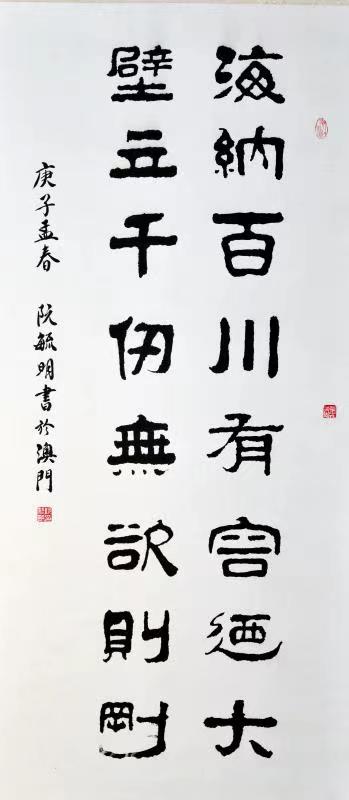 海納百川有容迺大
壁立千仞無欲則剛
庚子孟春 阮毓明書於澳門